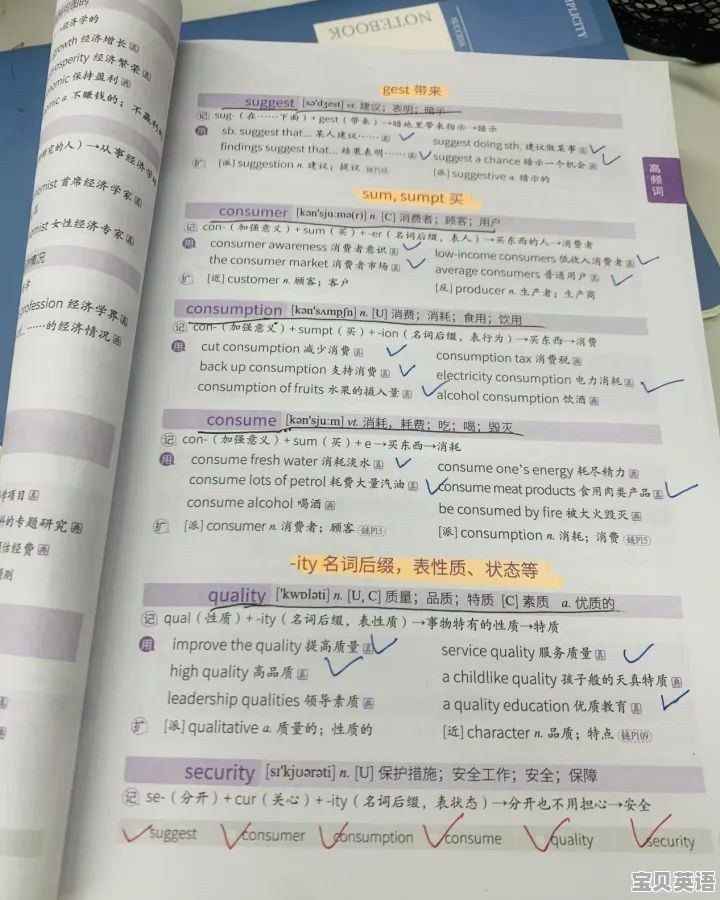 NOTEBOOK
SUCCESS
SIMPLICITY
→经济学的
growth 经济增长
prosperity 经济繁荣
保持盈利
a. 不赚钱的；不赢利
研究的人）→从事经济学
首席经济学家
女性经济专家
情况
profession 经济学界
……的经济情况
项目
的专题研究
估经费
预测
高频词
gest 带来
suggest [sə'dʒest] vt. 建议；表明；暗示
记 sug-（在……下面）+ gest（带来）→暗地里带来指示→暗示
用 sb. suggest that... 某人建议…… suggest doing sth. 建议做某事
findings suggest that... 结果表明…… suggest a chance 暗示一个机会
扩 [派] suggestion n. 建议；提议 [派] suggestive a. 暗示的
sum, sumpt 买
consumer [kən'sjuːmə(r)] n. [C] 消费者；顾客；用户
记 con-（加强意义）+ sum（买）+ -er（名词后缀，表人）→买东西的人→消费者
用 consumer awareness 消费者意识 low-income consumers 低收入消费者
the consumer market 消费者市场 average consumers 普通用户
扩 [近] customer n. 顾客；客户 [反] producer n. 生产者；生产商
consumption [kən'sʌmpʃn] n. [U] 消费；消耗；食用；饮用
记 con-（加强意义）+ sumpt（买）+ -ion（名词后缀，表行为）→买东西→消费
用 cut consumption 减少消费 consumption tax 消费税
back up consumption 支持消费 electricity consumption 电力消耗
consumption of fruits 水果的摄入量 alcohol consumption 饮酒
consume [kən'sjuːm] vt. 消耗，耗费；吃；喝；毁灭
记 con-（加强意义）+ sum（买）+ e→买东西→消耗
用 consume fresh water 消耗淡水 consume one's energy 耗尽精力
consume lots of petrol 耗费大量汽油 consume meat products 食用肉类产品
consume alcohol 喝酒 be consumed by fire 被大火毁灭
扩 [派] consumer n. 消费者；顾客 链P15 [派] consumption n. 消耗；消费 链P15
-ity 名词后缀，表性质、状态等
quality ['kwɒləti] n. [U, C] 质量；品质；特质 [C] 素质 a. 优质的
记 qual（性质）+ -ity（名词后缀，表性质）→事物特有的性质→特质
用 improve the quality 提高质量 service quality 服务质量
high quality 高品质 a childlike quality 孩子般的天真特质
leadership qualities 领导素质 a quality education 优质教育
扩 [派] qualitative a. 质量的；性质的 [近] character n. 品质；特点 链P109
security [sɪ'kjʊərəti] n. [U] 保护措施；安全工作；安全；保障
记 se-（分开）+ cur（关心）+ -ity（名词后缀，表状态）→分开也不用担心→安全
suggest consumer consumption consume quality security
宝贝英语